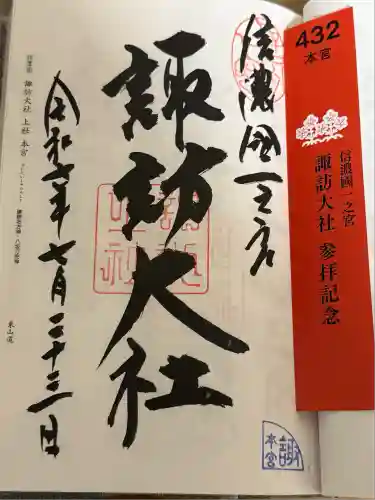 432
本宮
信濃國一之宮
諏訪大社 参拝記念
信濃國一之宮
諏訪大社
令和六年七月二十三日
諏訪大社 上社 本宮
東山道
諏
本宮